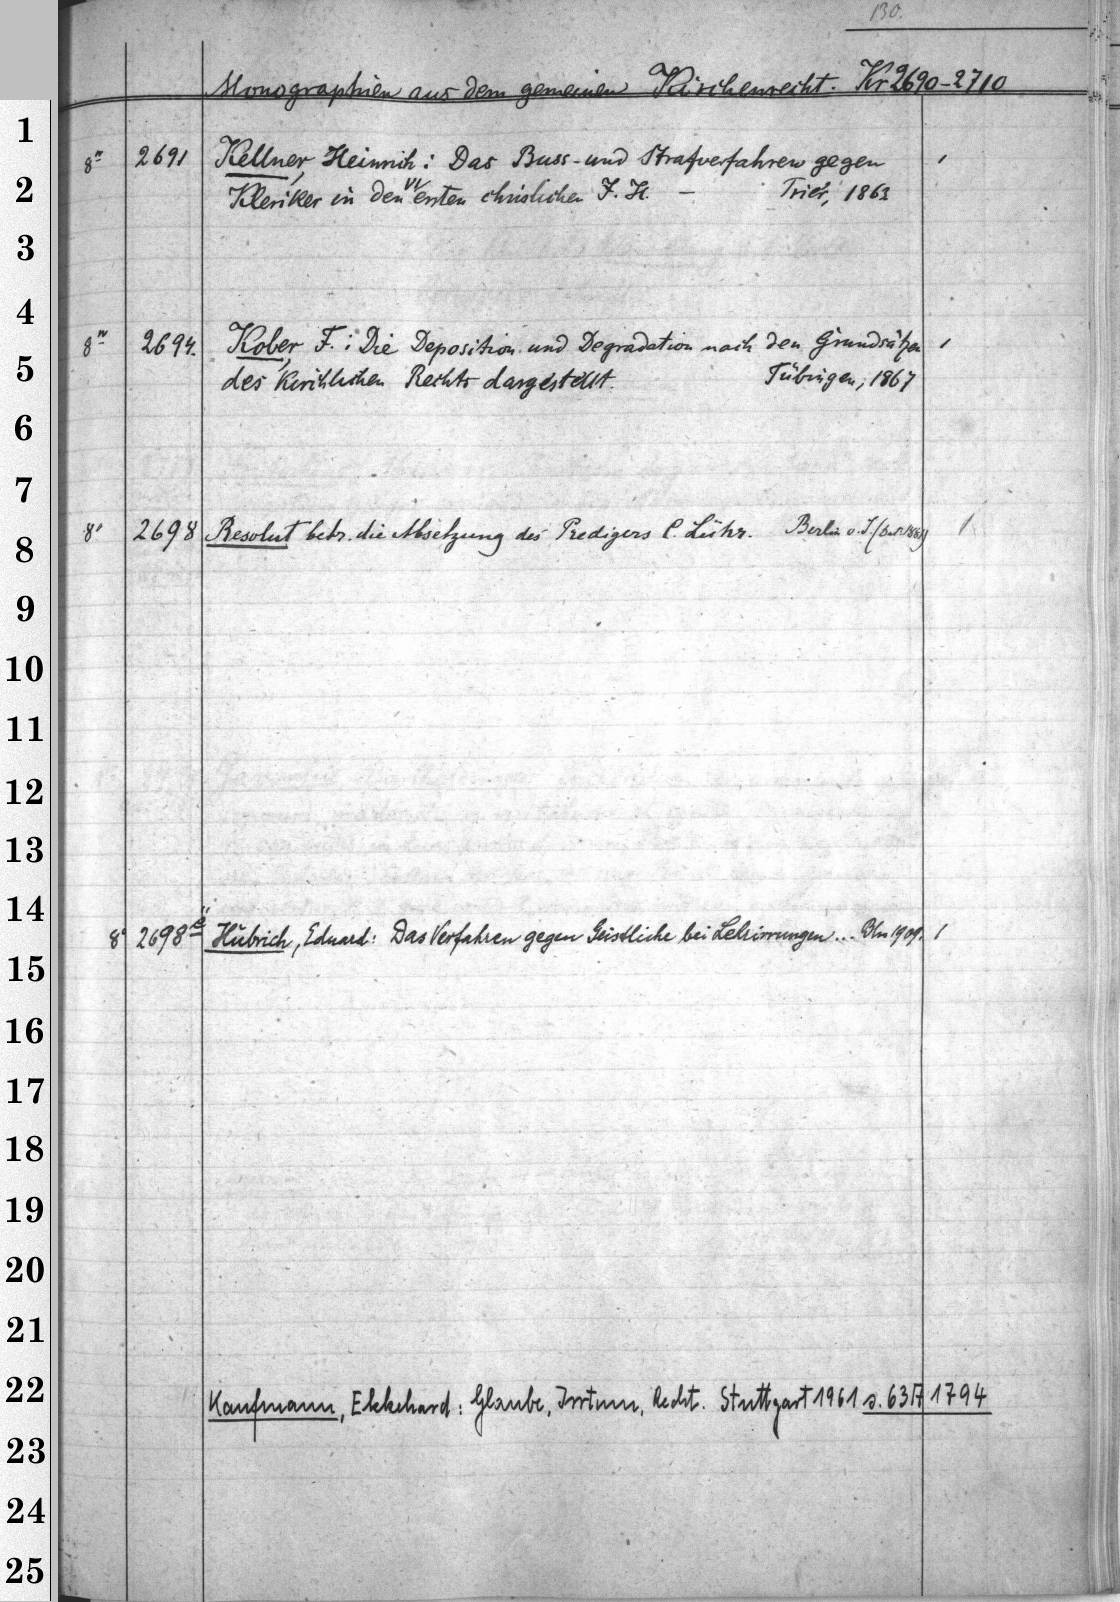 130.
Monographien aus dem gemeinen Kirchenrecht. Kr 2690-2710
1
8° 2691 Kellner, Heinrich: Das Buss- und Strafverfahren gegen 1
2
Kleriker in den VI ersten christlichen J. H. — Trier, 1863
3
4
8° 2694. Kober, F.: Die Deposition und Degradation nach den Grundsätzen 1
5
des kirchlichen Rechts dargestellt. Tübingen, 1867
6
7
8° 2698 Resolut betr. die Absetzung des Predigers C. Lühr. Berlin o. J. 1
8
9
10
11
12
13
14
8° 2698 Hubrich, Eduard: Das Verfahren gegen Geistliche bei Lehrirrungen... Bln 1909. 1
15
16
17
18
19
20
21
22
Kaufmann, Ekkehard: Glaube, Irrtum, Recht. Stuttgart 1961 s. 63 A 1794
23
24
25